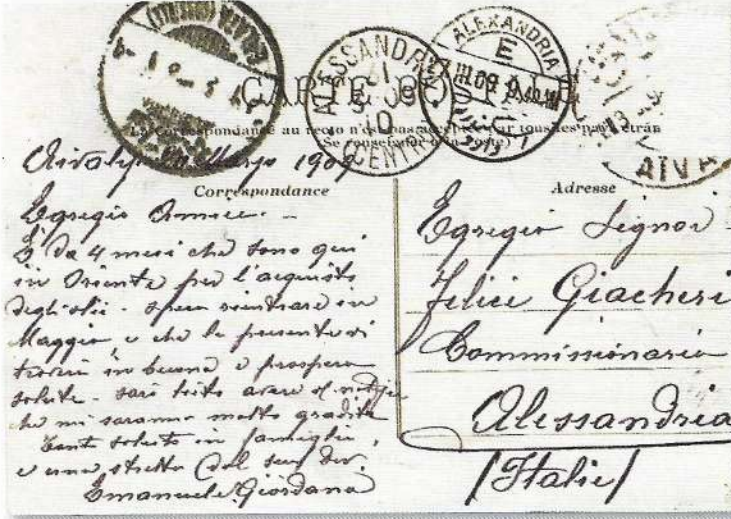 CARTE POSTALE
La correspondance au recto n'est pas acceptée par tous les pays étran
Se renseigner à la Poste)
ALESSANDRIA
CENTRO
ALEXANDRIA
ΑΪΒΑ
Marzo 1909
Correspondance
Adresse
Egregio Amico. -
È da 4 mesi che sono qui
in Oriente per l'acquisto
degli olii - spero rientrare in
Maggio, e che la presente vi
troverà in buona e prospera
salute - sarò lieto avere v/ notizie
che mi saranno molto gradite
Tanti saluti in famiglia,
e una stretta dal suo dev.
Emanuele Giordana
Egregio Signor
Felice Giacheri
Commissionario
Alessandria
/Italie/